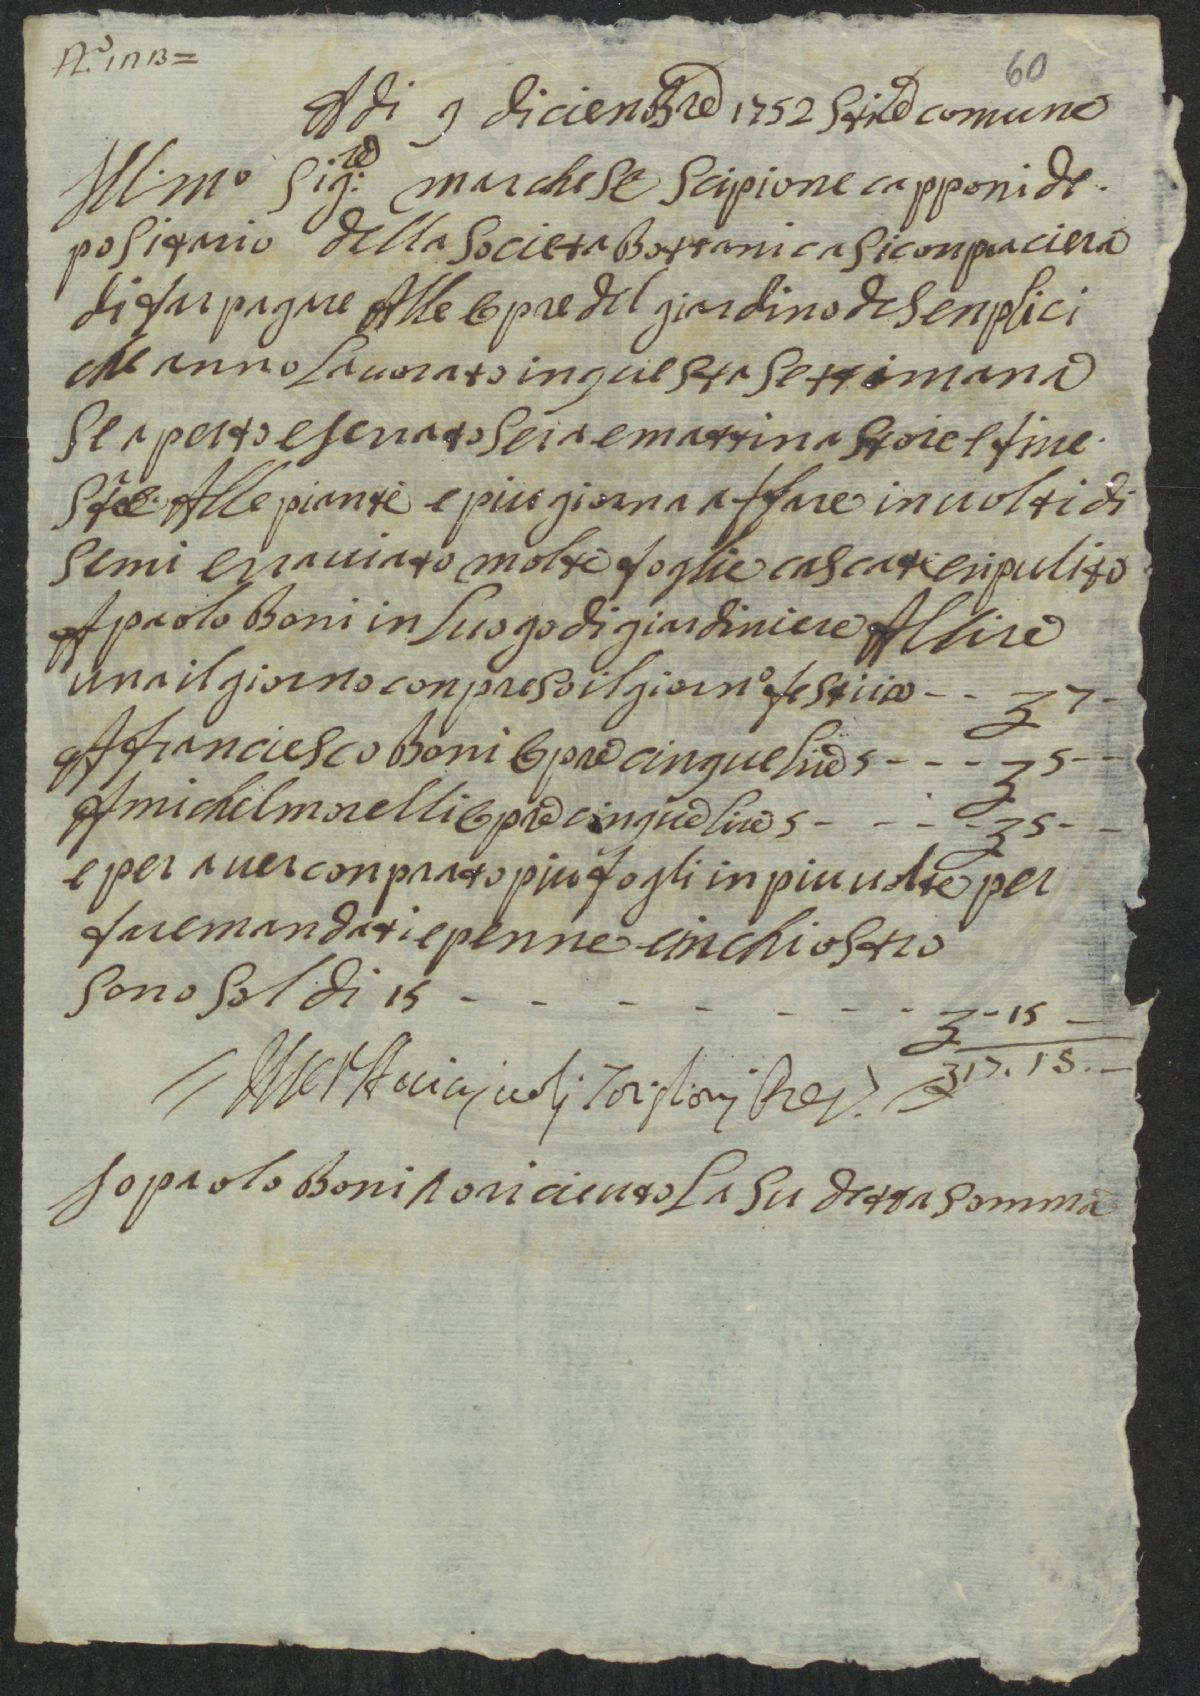 60
A di 9 diciembre 1752 Stile comune
Ill.mo Sig.re marchese Scipione capponi de-
positario della Societa Bottanica si conpraciera
di far pagare Alle Opre del giardino de Senplici
che anno Lauorato in questa Settimana
Se aperto e serrato Sera e mattina Stoie e fine-
Stre Alle piante e piu giorna a ffare inuolti di
Semi e rauiato molte foglie cascate e ripulito
A paolo Boni in Luogo di giardiniere A Lire
una il giorno conpreso il giorno festiuo - - 7 -
A franciesco Boni Opre cinque lire 5 - - - 5 - -
A michel morelli Opre cinque lire 5 - - - - 5 - -
e per auer conprato piu fogli in piu uolte per
fare mandati e penne e inchiostro
Sono Soldi 15 - - - - - - - - - 15 -
17. 15. -
Io paolo Boni o riceuto La Su detta Somma